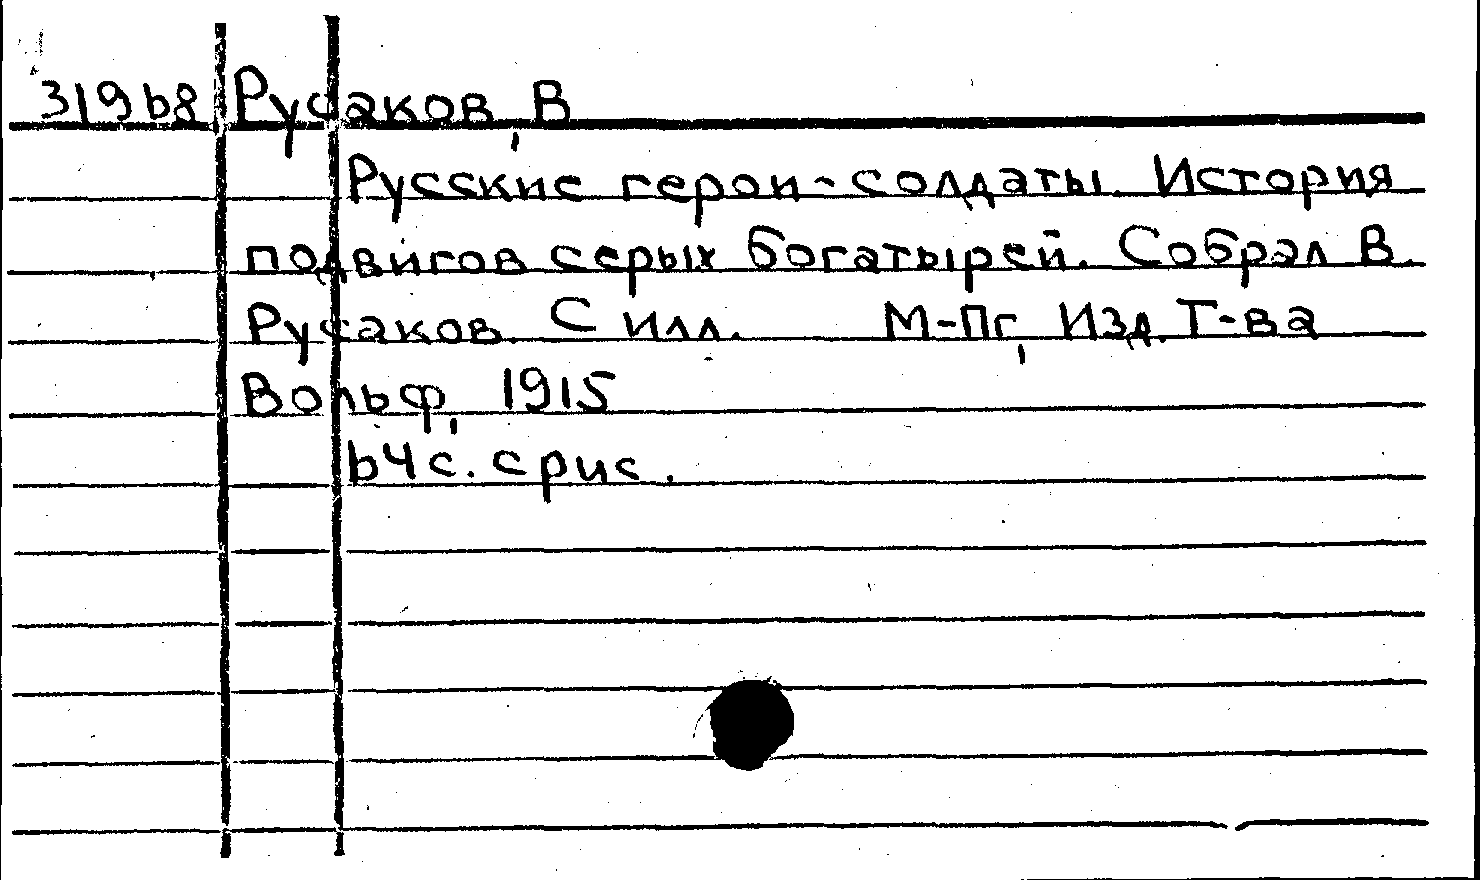 31968 Русаков, В
Русские герои-солдаты. История
подвигов серых богатырей. Собрал В.
Русаков. С илл. М-Пг, Изд. Т-ва
Вольф, 1915
64 с. с рис.